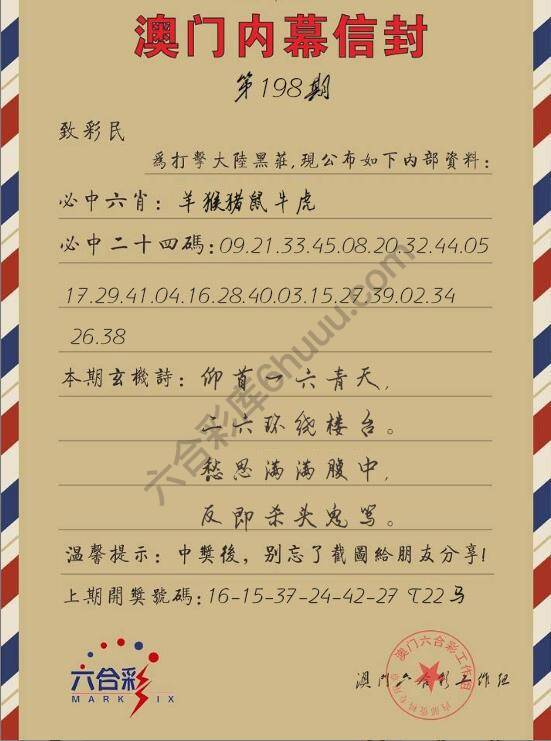 澳门内幕信封
第198期
致彩民
為打擊大陸黑莊,現公布如下内部資料:
必中六肖:羊猴猪鼠牛虎
必中二十四碼:09.21.33.45.08.20.32.44.05
17.29.41.04.16.28.40.03.15.27.39.02.34
26.38
本期玄機詩:仰首一六青天,
二六环线楼台。
愁思满满腹中,
反即杀头鬼骂。
温馨提示:中獎後,别忘了截圖給朋友分享!
上期開獎號碼:16-15-37-24-42-27 T22马
六合彩
MARK SIX
澳门六合彩工作组
澳门六合彩工作组
六合彩库6huuu.com